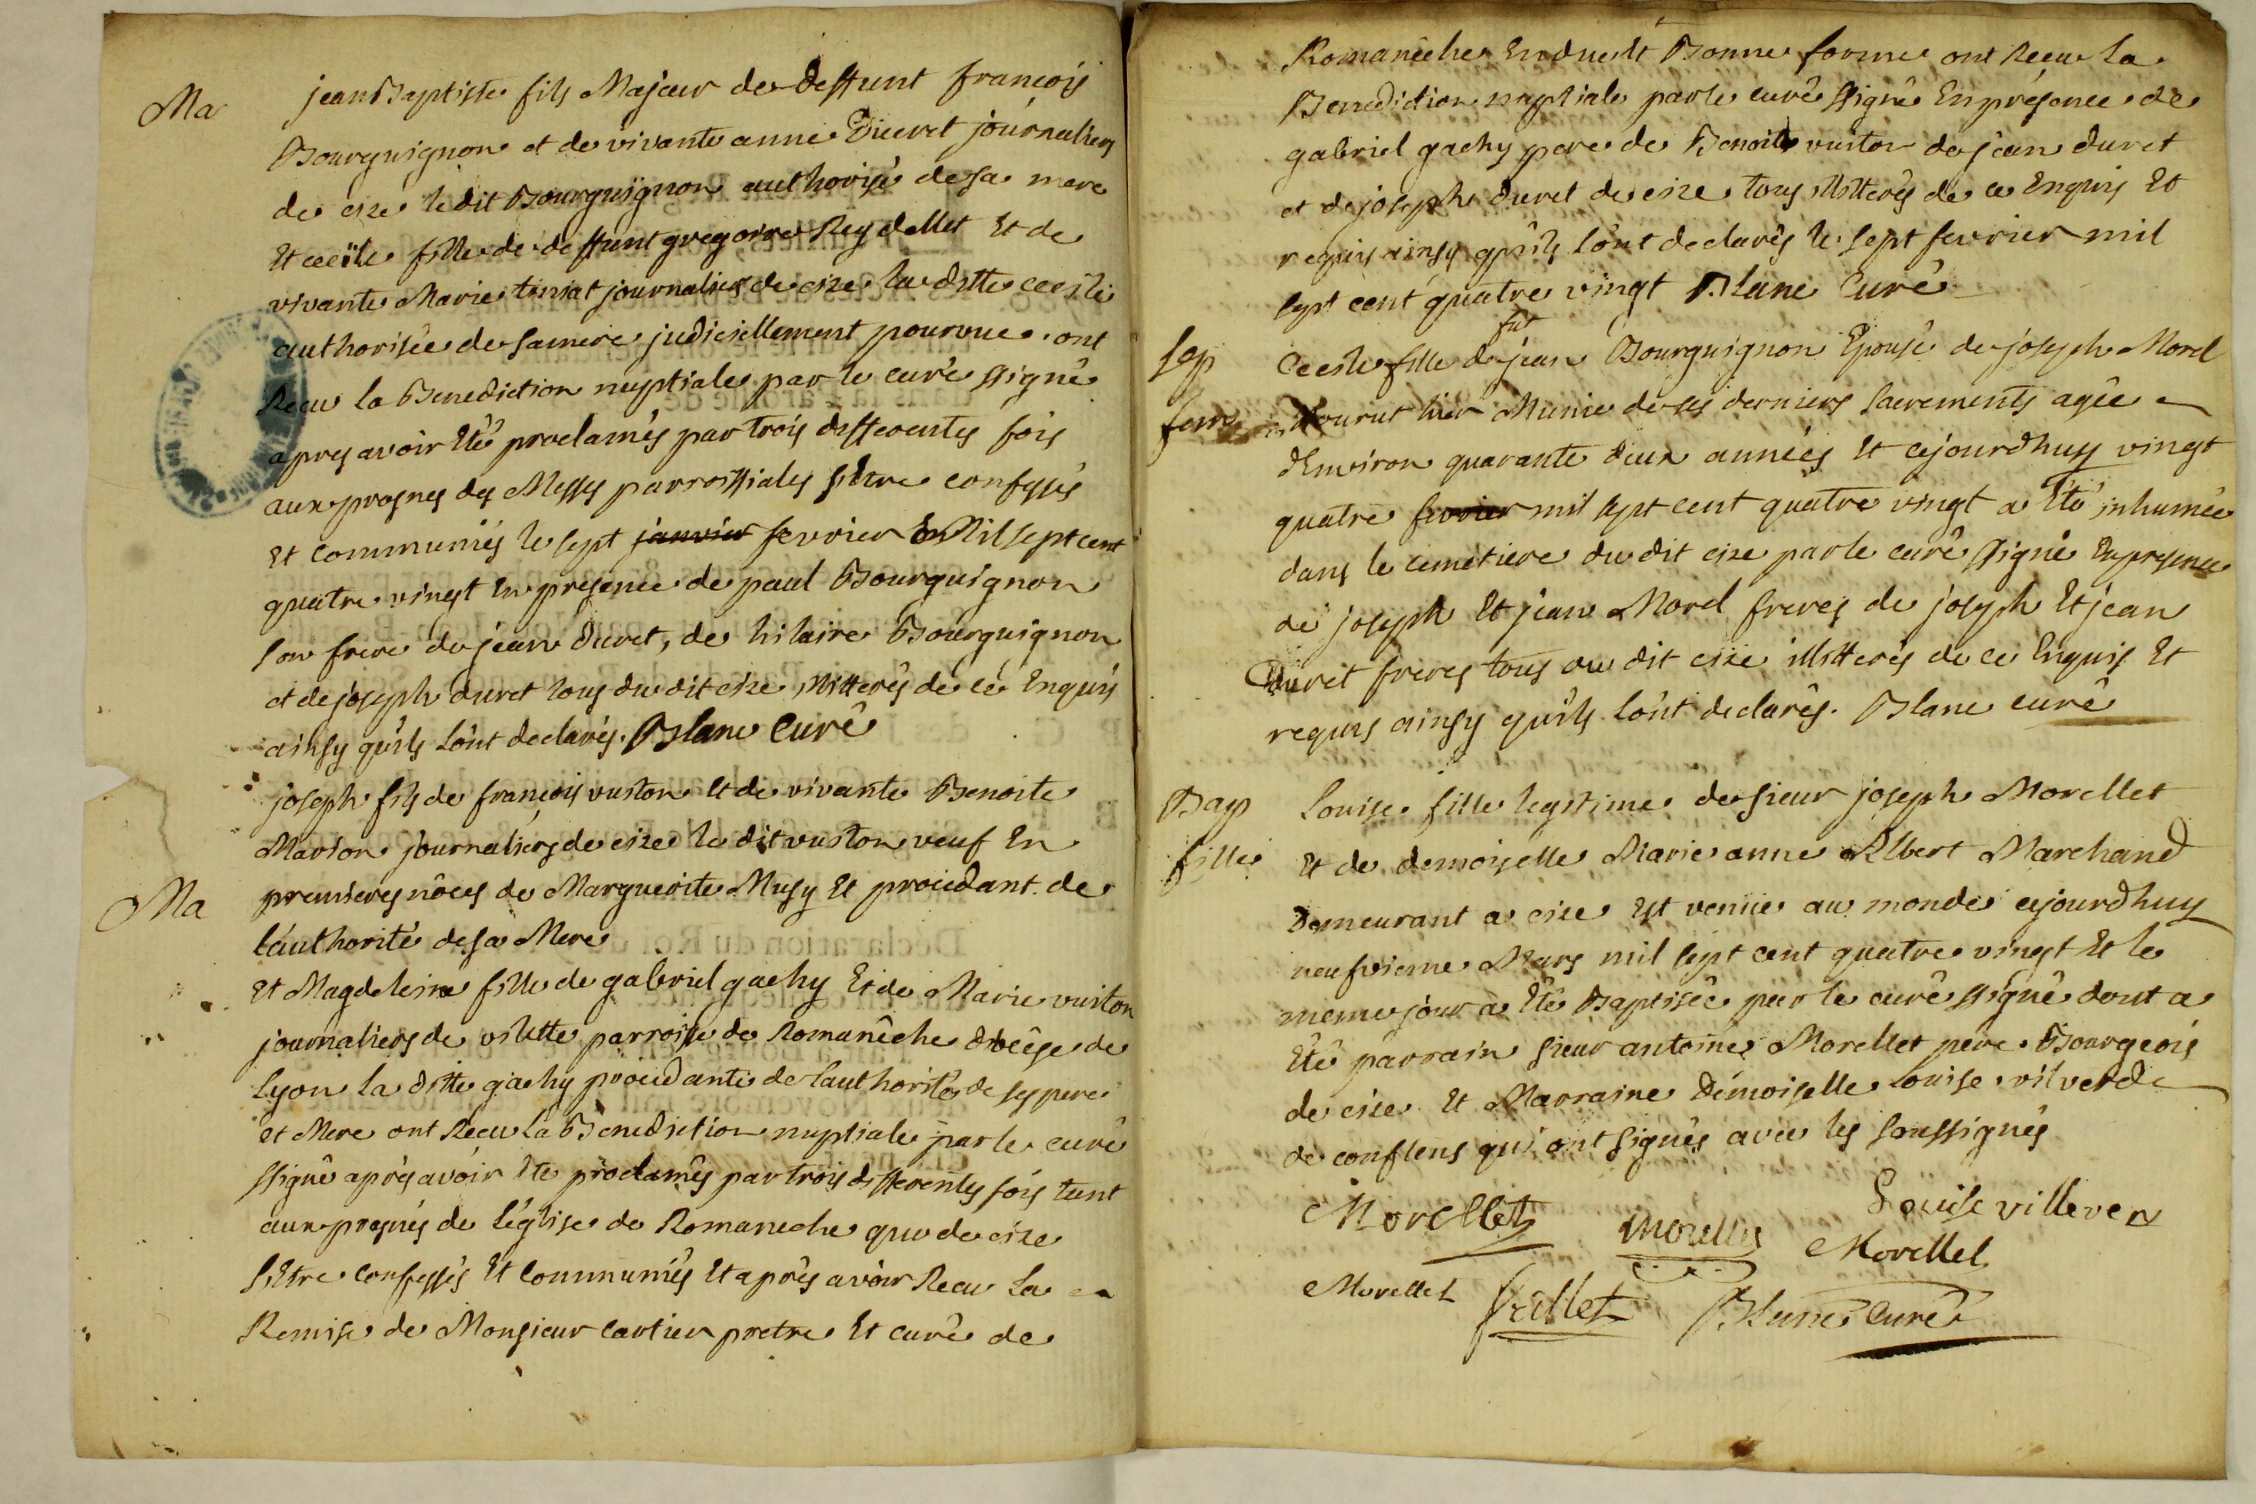 Ma
jean Baptiste fils Majeur de deffunt francois
Bourguignon et de vivante anne Ducret journaliers
de cize ledit Bourguignon authorisé de sa mere
Et cecile fille de deffunt gregoire Reydellet Et de
vivante Marie tiniat journaliers de cize la ditte cecile
authorisée de sa mere judiciellement pourvue ont
Recu la Benediction nuptiale par le curé ssigné
apres avoir Eté proclamés par trois differentes fois
aux prosnes des Messes parroissiales s'etre confessés
Et communiés le sept janvier fevrier Mil sept cent
quatre vingt En presence de paul Bourguignon
son frere de jean Duret, de hilaire Bourguignon
et de joseph duret tous du dit cize illitterés de cé Enquis
ainsy qu'ils lont declarés. Blanc Curé
Ma
joseph fils de francois vuiton Et de vivante Benoite
Marion journaliers de cize le dit vuiton veuf En
premieres nôces de Marguerite Musy Et procedant de
l'authorité de sa Mere
Et Magdeleine fille de gabriel gachy Et de Marie vuiton
journaliers de villette parroisse de Romanêche diocêse de
Lyon la ditte gachy procedante de l'authorité de ses pere
et Mere ont Recu la Benediction nuptiale par le curé
ssigné aprés avoir Eté proclamés par trois differentes fois tant
aux prosnes de l'église de Romaneche que de cize
s'Etre confessés Et Communiés Et aprés avoir Recu La
Remise de Monsieur Cartier pretre Et curé de
Romanêche En duest Bonne forme ont Recu La
Benediction nuptiale par le curé ssigné En présence de
gabriel gachy pere de Benoit vuiton de jean duret
et de joseph duret de cize tous illitterés de ce Enquis Et
requis ainsy qu'ils lont declarés le sept fevrier mil
sept cent quatre vingt Blanc Curé
Sep
fem
fut
Cecile fille de jean Bourguignon Epouse de joseph Morel
Mourut hier Munie de ses derniers sacrements agée
d'Environ quarante deux années Et cejourdhuy vingt
quatre fevrier mil sept cent quatre vingt a Eté inhumée
dans le cimetiere du dit cize par le curé ssigné En presence
de joseph Et jean Morel freres de joseph Et jean
Duret freres tous du dit cize illitterés de ce Enquis Et
requis ainsy qu'ils lont declarés. Blanc curé
Bap
fille
Louise fille legitime de sieur joseph Morellet
Et de demoiselle Marie anne Albert Marchand
Demeurant a cize Est venüe au monde cejourdhuy
neufvieme Mars mil sept cent quatre vingt Et le
meme jour a Eté Baptisée par le curé ssigné dont a
Eté parrain sieur antoine Morellet pere Bourgeois
de cize Et Marraine Demoiselle Louise vilverd
de conflens qui ont signés avec les soussignés
Morellet Morellet Louise villever
Morellet
Morellet Blanc Curé